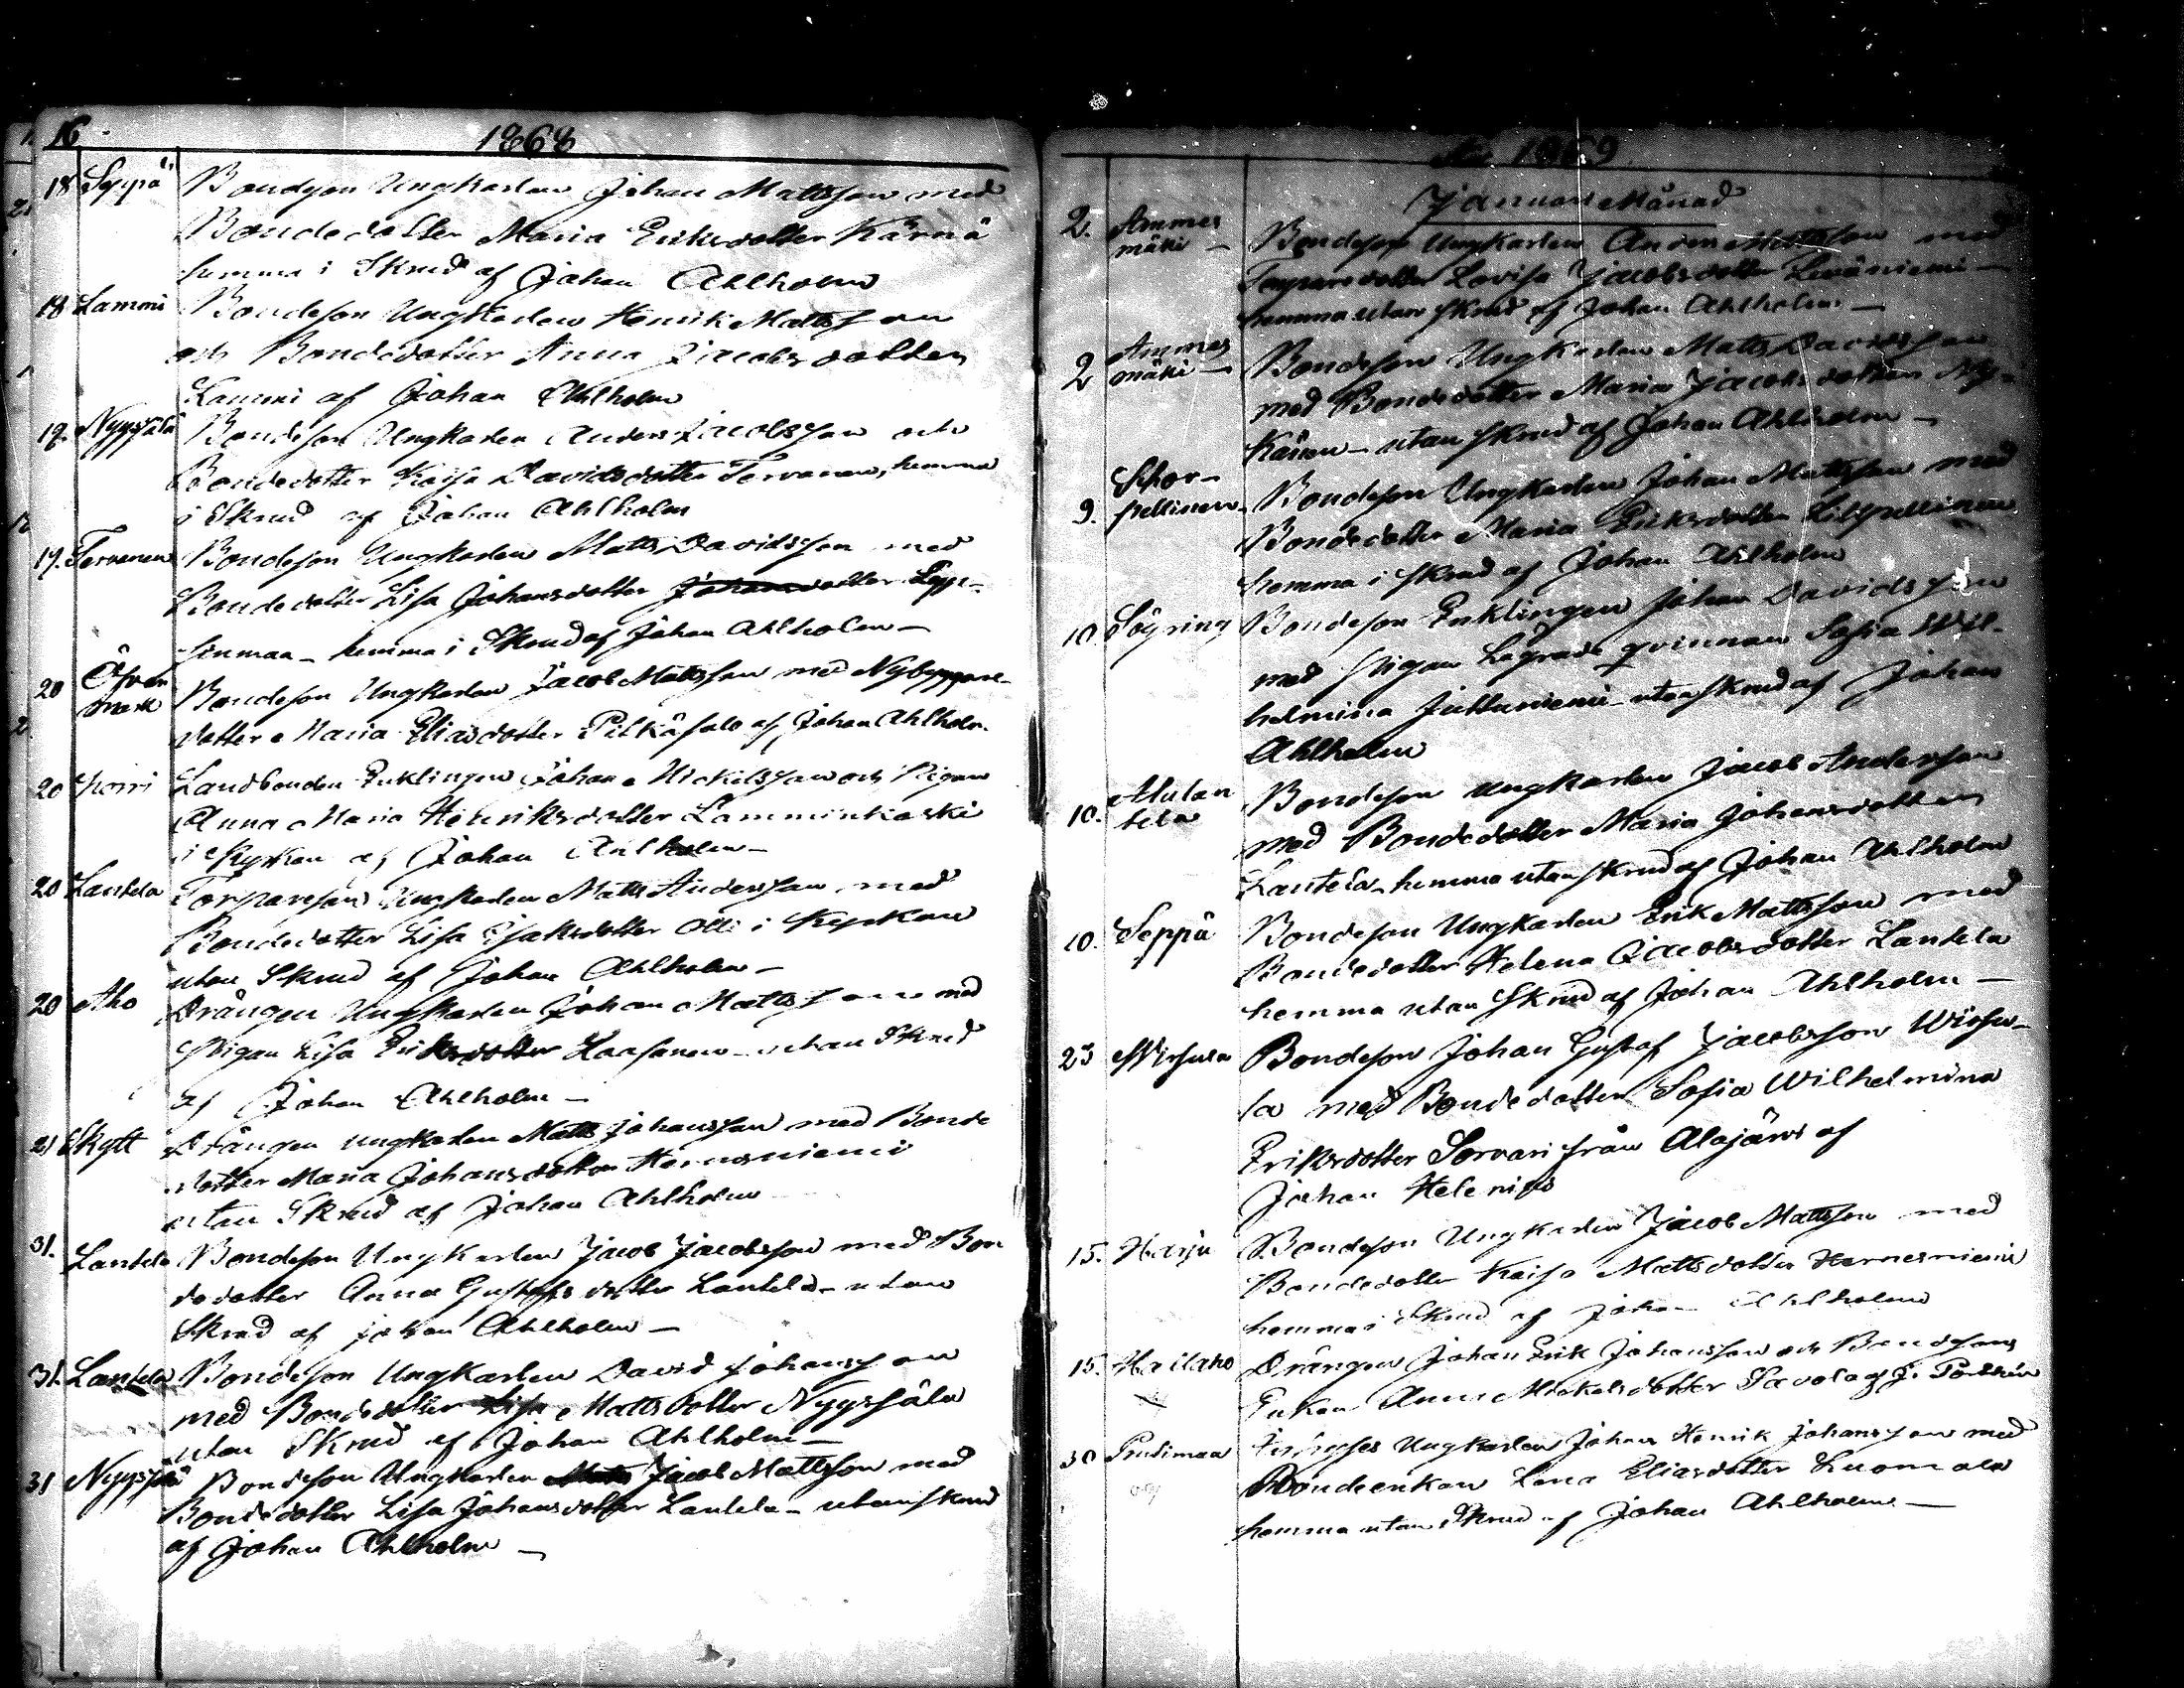 16
1868
18 Seppä Bondeson Ungkarlen Johan Mattsson med
Bondedotter Maria Eriksdotter Kärnä
hemma i Skrud af Johan Ahlholm
18 Lammi Bondeson Ungkarlen Henrik Mattsson
och Bondedotter Anna Jacobsdotter
Lammi af Johan Ahlholm
19. Nyyssälä Bondeson Ungkarlen Anders Jacobsson och
Bondedotter Kajsa Davidsdotter Tervanen, hemma
i Skrud af Johan Ahlholm
19. Tervanen Bondeson Ungkarlen Matts Davidsson med
Bondedotter Lisa Johansdotter Johansdotter Lepp-
hemma i Skrud af Johan Ahlholm —
20 Öfvermark Bondeson Ungkarlen Jacob Mattsson med Nybyggare-
dotter Maria Eliasdotter Pitkäsalo af Johan Ahlholm.
20 Porri Landbonden Enklingen Johan Mickelsson och Pigan
Anna Maria Henriksdotter Lamminkaski
i Kyrkan af Johan Ahlholm —
20 Lantela Torpareson Ungkarlen Matts Andersson med
Bondedotter Lisa Isaksdotter Olli i Kyrkan
utan Skrud af Johan Ahlholm —
20 Aho Drängen Ungkarlen Johan Mattsson med
Pigan Lisa Eriksdotter Haasanen – utan Skrud
af Johan Ahlholm —
21 Skytt Drängen Ungkarlen Matts Johansson med Bonde
dotter Maria Johansdotter Hernesniemi
utan Skrud af Johan Ahlholm
31. Lantela Bondeson Ungkarlen Jacob Jacobsson med Bon
dedotter Anna Gustafsdotter Lantela – utan
Skrud af Johan Ahlholm —
31. Lantela Bondeson Ungkarlen David Johansson
med Bondedotter Lisa Mattsdotter Nyyssälä
utan Skrud af Johan Ahlholm —
31 Nyyssälä Bondeson Ungkarlen Matts Jacob Mattsson med
Bondedotter Lisa Johansdotter Lantela – utan skrud
af Johan Ahlholm —
1869
Januari Månad
2. Ammesmäki — Bondeson Ungkarlen Anders Mattsson med
Torparedotter Lovisa Jacobsdotter Leväniemi —
hemma utan skrud af Johan Ahlholm —
2 Ammesmäki — Bondeson Ungkarlen Matts Davidsson
med Bondedotter Maria Jacobsdotter Ny-
– utan skrud af Johan Ahlholm —
9. Bondeson Ungkarlen Johan Mattsson med
Bondedotter Maria Eriksdotter
hemma i skrud af Johan Ahlholm
10. Söyring Bondeson Enklingen Johan Davidsson
med Pigan Lägrade qvinnan Sofia Wil-
helmina utan skrud af Johan
Ahlholm
10. Alatantela Bondeson Ungkarlen Jacob Andersson
med Bondedotter Maria Johansdotter
Lantela – hemma utan skrud af Johan Ahlholm
10. Seppä Bondeson Ungkarlen Erik Mattsson med
Bondedotter Helena Jacobsdotter Lantela
hemma utan Skrud af Johan Ahlholm —
23 Wirsula Bondeson Johan Gustaf Jacobsson Wirsu-
la med Bondedotter Sofia Wilhelmina
Eriksdotter Sorvari från Alajärvi af
Johan Helenius
15. Harju Bondeson Ungkarlen Jacob Mattsson med
Bondedotter Kaisa Mattsdotter Hernesniemi
hemma i Skrud af Johan Ahlholm
15. Drängen Johan Erik Johansson och Bondesons
Enkan Anna Mickelsdotter Savola af J.
30 Ungkarlen Johan Henrik Johansson med
Bondeenkan Lena Eliasdotter Luomala
hemma utan Skrud af Johan Ahlholm —